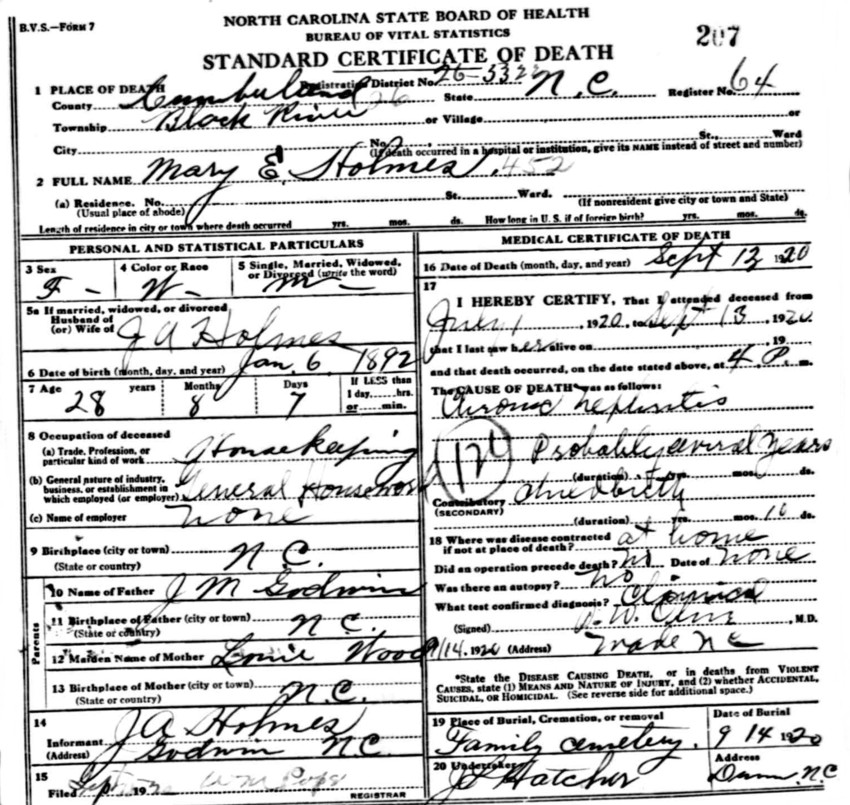 B.V.S.—FORM 7
NORTH CAROLINA STATE BOARD OF HEALTH
BUREAU OF VITAL STATISTICS
STANDARD CERTIFICATE OF DEATH
207
1 PLACE OF DEATH
Registration District No. 26-5322
County Cumberland 26 State N.C. Register No. 64
Township Black River or Village or
City No. St., Ward
(If death occurred in a hospital or institution, give its NAME instead of street and number)
2 FULL NAME Mary E. Holmes. 452
(a) Residence. No. St. Ward.
(Usual place of abode) (If nonresident give city or town and State)
Length of residence in city or town where death occurred yrs. mos. ds. How long in U. S. if of foreign birth? yrs. mos. ds.
PERSONAL AND STATISTICAL PARTICULARS
3 Sex F- 4 Color or Race W- 5 Single, Married, Widowed, or Divorced (write the word) M-
5a If married, widowed, or divorced
Husband of
(or) Wife of J A Holmes
6 Date of birth (month, day, and year) Jan. 6 1892
7 Age 28 years Months 8 Days 7 If LESS than 1 day, hrs. or min.
8 Occupation of deceased
(a) Trade, Profession, or particular kind of work Housekeeping
(b) General nature of industry, business, or establishment in which employed (or employer) General Housework
(c) Name of employer none
9 Birthplace (city or town)
(State or country) N C.
Parents
10 Name of Father J M Godwin
11 Birthplace of Father (city or town)
(State of country) N C.
12 Maiden Name of Mother Wood
13 Birthplace of Mother (city or town)
(State or country) N.C.
14
Informant J A Holmes
(Address) Godwin N.C.
15
Filed Sept 19 REGISTRAR
MEDICAL CERTIFICATE OF DEATH
16 Date of Death (month, day, and year) Sept 13 1920
17
I HEREBY CERTIFY, That I attended deceased from
July 1, 1920, to Sept 13, 1920
that I last saw her alive on , 19
and that death occurred, on the date stated above, at 4 P. m.
The CAUSE OF DEATH* was as follows:
Chronic nephritis
Probably several years
(duration) yrs. mos. ds.
Contributory
(SECONDARY)
(duration) yrs. mos. 10 ds.
18 Where was disease contracted
if not at place of death? at home
Did an operation precede death? no Date of none
Was there an autopsy? no
What test confirmed diagnosis? Clinical
(Signed) M.D.
9/14, 1920 (Address) Wade NC
*State the DISEASE CAUSING DEATH, or in deaths from VIOLENT
CAUSES, state (1) MEANS AND NATURE OF INJURY, and (2) whether ACCIDENTAL,
SUICIDAL, or HOMICIDAL. (See reverse side for additional space.)
19 Place of Burial, Cremation, or removal Date of Burial
Family cemetery. 9 14 1920
20 Undertaker Address
Hatcher Dunn N.C